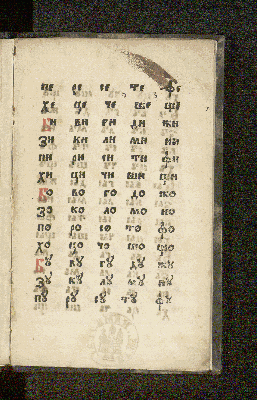 пе ре се те фе
хе це че ше ще
Би ви ги ди жи
зи ки ли ми ни
пи ри си ти фи
хи ци чи ши щи
Бо во го до жо
зо ко ло мо но
по ро со то фо
хо цо чо шо що
Бꙋ вꙋ гꙋ дꙋ жꙋ
зꙋ кꙋ лꙋ мꙋ нꙋ
пꙋ рꙋ сꙋ тꙋ фꙋ